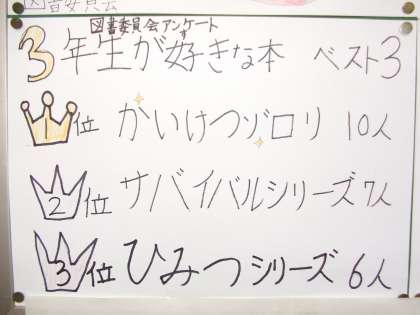 図書委員会
図書委員会アンケート
3年生が好きな本 ベスト3
す
1位 かいけつゾロリ 10人
2位 サバイバルシリーズ 7人
3位 ひみつシリーズ 6人